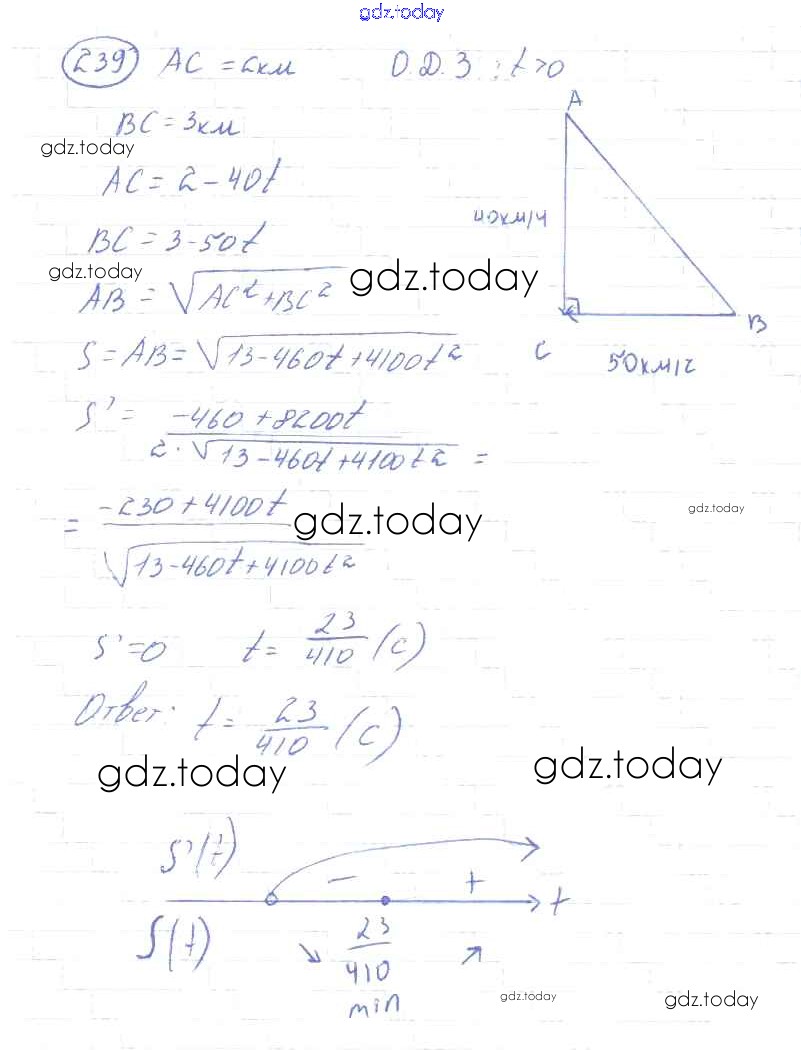 gdz.today
239 AC = 2км О.Д.З : t>0
BC = 3км
gdz.today
AC = 2 - 40t
BC = 3 - 50t
gdz.today
AB = √AC² + BC²
gdz.today
S = AB = √13 - 460t + 4100t²
A
40км/ч
C
B
50км/ч
S' = -460 + 8200t / 2 · √13 - 460t + 4100t² =
= -230 + 4100t / √13 - 460t + 4100t²
gdz.today
gdz.today
S' = 0 t = 23/410 (c)
Ответ: t = 23/410 (c)
gdz.today
gdz.today
S'(t)
- + t
S(t) ↘ 23/410 ↗
min
gdz.today
gdz.today